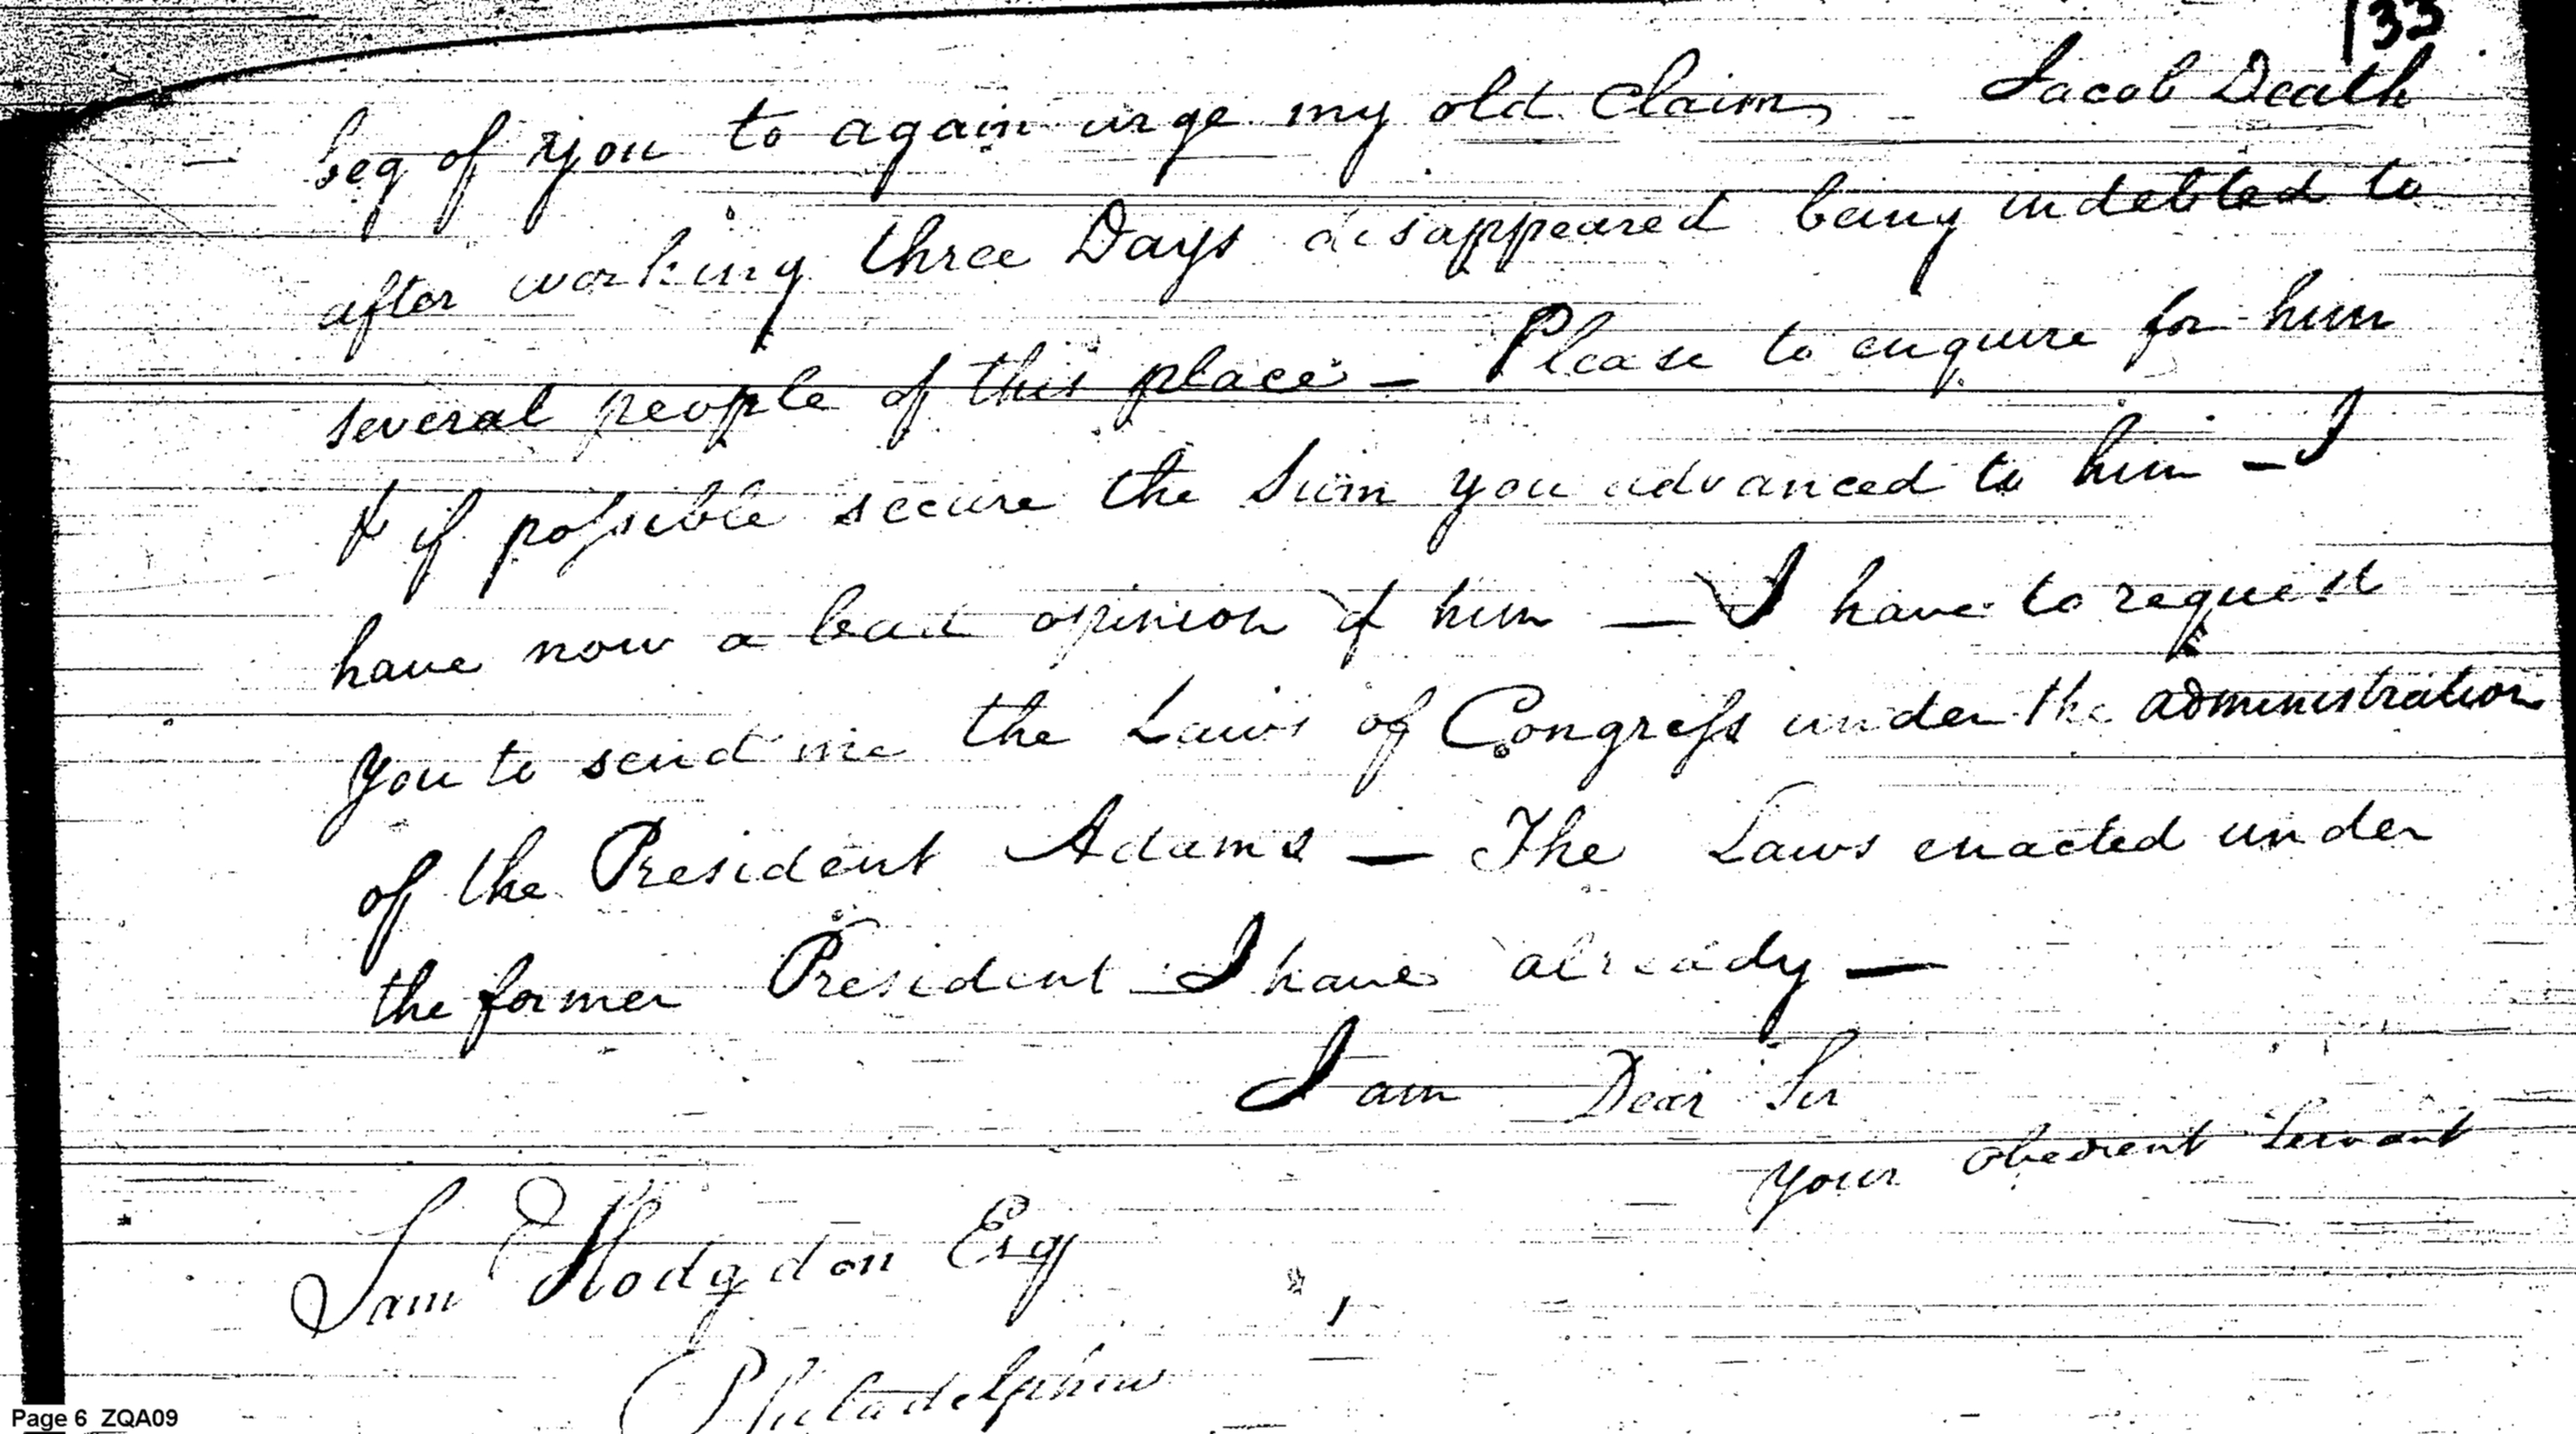 133
beg of you to again urge my old Claim, Jacob Death
after working three Days disappeared being indebted to
several people of this place — Please to enquire for him
& if possible secure the Sum you advanced to him — I
have now a bad opinion of him — I have to request
you to send me the Laws of Congress under the administration
of the President Adams — The Laws enacted under
the former President I have already —
I am Dear Sir
your obedient Servant
Sam Hodgdon Esq
Philadelphia
Page 6 ZQA09